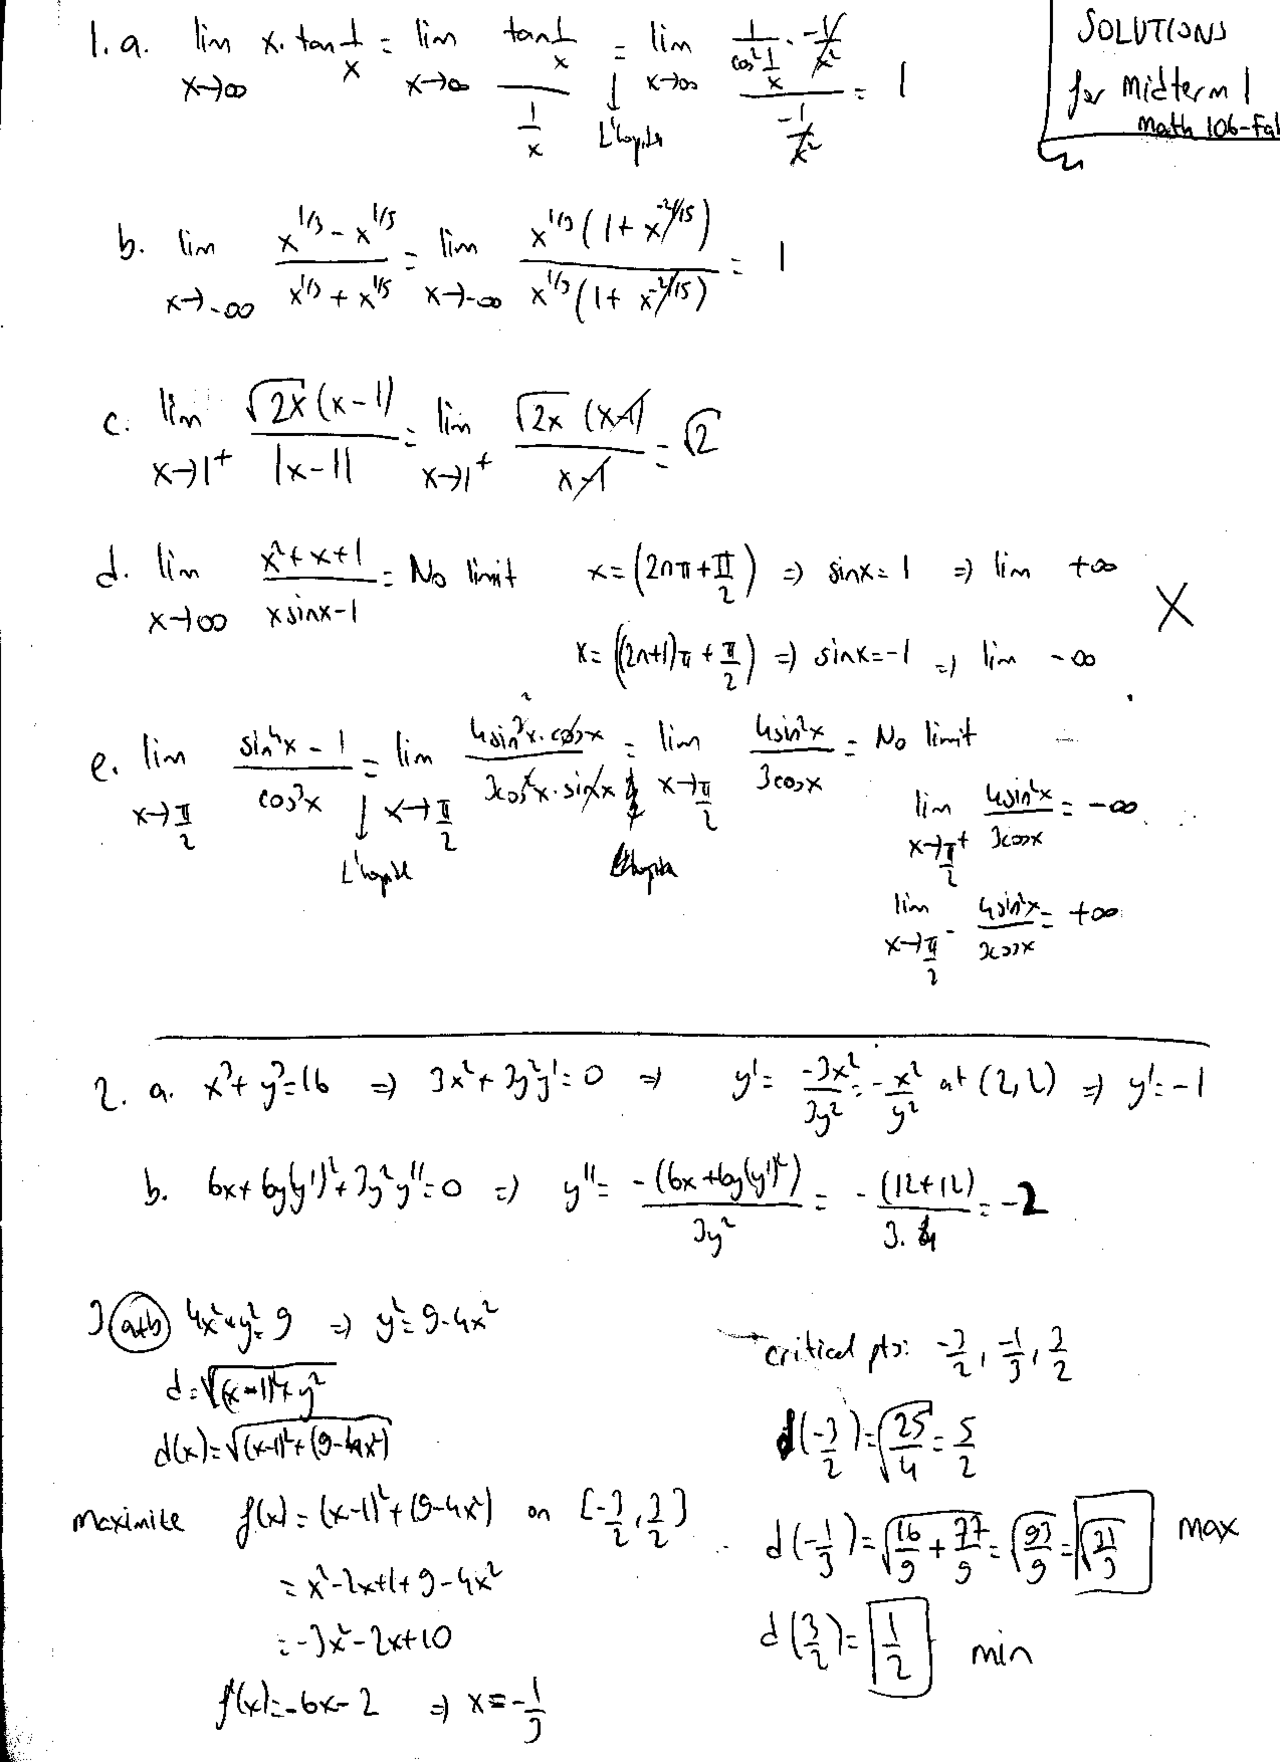 SOLUTIONS
for Midterm 1
Math 106-Fal
1. a. lim x→∞ x. tan 1/x = lim x→∞ (tan 1/x)/(1/x) = lim x→∞ (1/cos² 1/x · -1/x²)/(-1/x²) = 1
L'hopite
b. lim x→-∞ (x^1/3 - x^1/5)/(x^1/3 + x^1/5) = lim x→-∞ x^1/3 (1 + x^-2/15)/x^1/3 (1 + x^-2/15) = 1
c. lim x→1⁺ √2x (x-1)/|x-1| = lim x→1⁺ √2x (x-1)/x-1 = √2
d. lim x→∞ (x²+x+1)/(x sinx-1) = No limit x = (2nπ + π/2) ⇒ sinx = 1 ⇒ lim +∞ X
x = ((2n+1)π + π/2) ⇒ sinx = -1 ⇒ lim -∞
e. lim x→π/2 (sin⁴x - 1)/cos³x = lim x→π/2 4sin³x·cosx/3cos²x·sinx = lim x→π/2 4sin²x/3cosx = No limit
L'hopitl
lim x→π/2⁺ 4sin²x/3cosx = -∞
lim x→π/2⁻ 4sin²x/3cosx = +∞
2. a. x³ + y³ = 16 ⇒ 3x² + 3y²y' = 0 ⇒ y' = -3x²/3y² = -x²/y² at (2,2) ⇒ y' = -1
b. 6x + 6y(y')² + 3y²y'' = 0 ⇒ y'' = -(6x + 6y(y')²)/3y² = -(12+12)/3.4 = -2
3 a+b 4x² + y² = 9 ⇒ y² = 9-4x²
d = √(x-1)² + y²
d(x) = √(x-1)² + (9-4x²)
Maximize f(x) = (x-1)² + (9-4x²) on [-3/2, 3/2]
= x² - 2x + 1 + 9 - 4x²
= -3x² - 2x + 10
f'(x) = -6x - 2 ⇒ x = -1/3
→ critical pts: -3/2, -1/3, 3/2
d(-3/2) = √25/4 = 5/2
d(-1/3) = √16/9 + 77/9 = √93/9 = √31/3 max
d(3/2) = 1/2 min